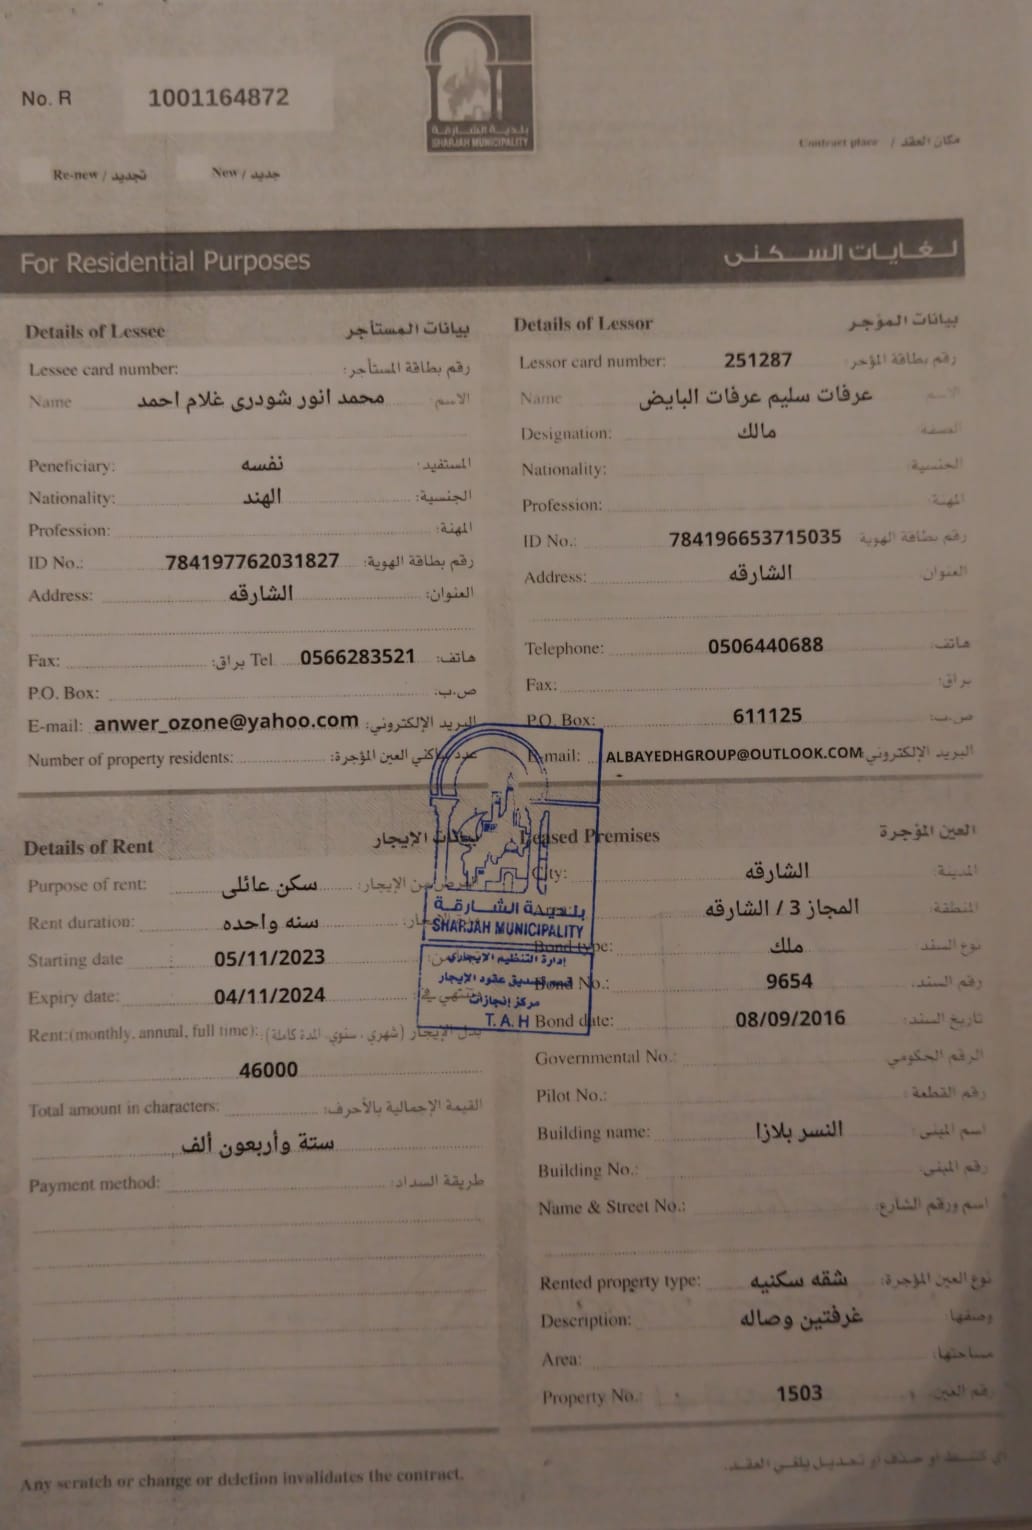 بلدية الشارقة
SHARJAH MUNICIPALITY
No. R 1001164872
Contract place / مكان العقد
Re-new / تجديد New / جديد
For Residential Purposes لغايات السكنى
Details of Lessee بيانات المستأجر
Lessee card number: رقم بطاقة المستأجر:
Name محمد انور شودرى غلام احمد الاسم
Peneficiary: نفسه المستفيد:
Nationality: الهند الجنسية:
Profession: المهنة:
ID No.: 784197762031827 رقم بطاقة الهوية:
Address: الشارقه العنوان:
Fax: براق: Tel 0566283521 هاتف:
P.O. Box: ص.ب:
E-mail: anwer_ozone@yahoo.com البريد الإلكتروني:
Number of property residents: عدد ساكني العين المؤجرة:
Details of Lessor بيانات المؤجر
Lessor card number: 251287 رقم بطاقة المؤجر:
Name عرفات سليم عرفات البايض الاسم
Designation: مالك الصفة:
Nationality: الجنسية:
Profession: المهنة:
ID No.: 784196653715035 رقم بطاقة الهوية
Address: الشارقه العنوان:
Telephone: 0506440688 هاتف:
Fax: براق:
P.O. Box: 611125 ص.ب:
E-mail: ALBAYEDHGROUP@OUTLOOK.COM البريد الإلكتروني
Details of Rent بيانات الإيجار
Purpose of rent: سكن عائلى الغرض من الإيجار:
Rent duration: سنه واحده
Starting date : 05/11/2023 من:
Expiry date: 04/11/2024 تنتهي في:
Rent:(monthly, annual, full time): بدل الإيجار (شهري، سنوي، المدة كاملة):
46000
Total amount in characters: القيمة الإجمالية بالأحرف:
ستة وأربعون ألف
Payment method: طريقة السداد:
Leased Premises العين المؤجرة
City: الشارقه المدينة:
Area: المجاز 3 / الشارقه المنطقة:
Bond type: ملك نوع السند:
Bond No.: 9654 رقم السند:
Bond date: 08/09/2016 تاريخ السند:
Governmental No.: الرقم الحكومي
Pilot No.: رقم القطعة:
Building name: النسر بلازا اسم المبنى:
Building No.: رقم المبنى:
Name & Street No.: اسم ورقم الشارع:
Rented property type: شقه سكنيه نوع العين المؤجرة:
Description: غرفتين وصاله وصفها:
Area: مساحتها:
Property No.: 1503 رقم العين:
بلدية الشارقة
SHARJAH MUNICIPALITY
إدارة التنظيم الإيجاري
قسم تصديق عقود الإيجار
مركز إنجازات
T.A.H
Any scratch or change or deletion invalidates the contract. أي كشط او حذف او تعديل يلغي العقد.